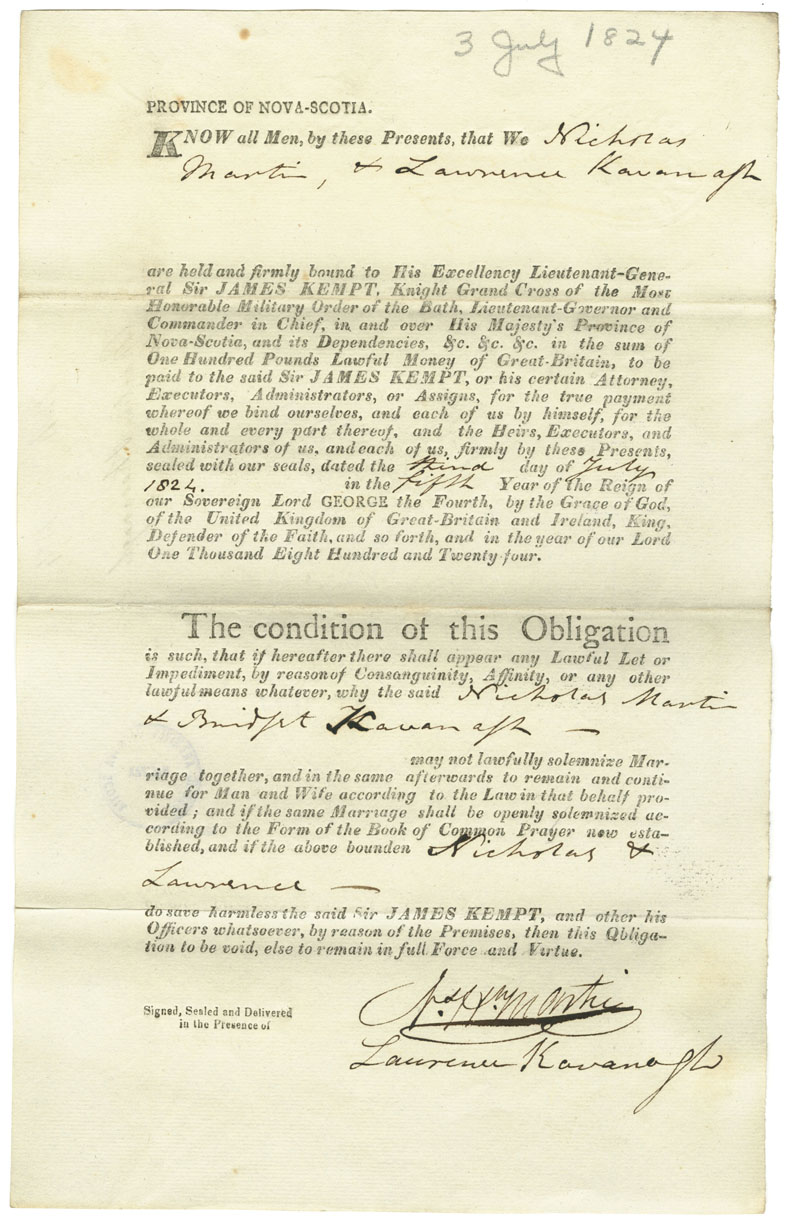 3 July 1824
PROVINCE OF NOVA-SCOTIA.
KNOW all Men, by these Presents, that We Nicholas
Martin, & Lawrence Kavanagh
are held and firmly bound to His Excellency Lieutenant-Gene-
ral Sir JAMES KEMPT, Knight Grand Cross of the Most
Honorable Military Order of the Bath, Lieutenant-Governor and
Commander in Chief, in and over His Majesty's Province of
Nova-Scotia, and its Dependencies, &c. &c. &c. in the sum of
One Hundred Pounds Lawful Money of Great-Britain, to be
paid to the said Sir JAMES KEMPT, or his certain Attorney,
Executors, Administrators, or Assigns, for the true payment
whereof we bind ourselves, and each of us by himself, for the
whole and every part thereof, and the Heirs, Executors, and
Administrators of us, and each of us, firmly by these Presents,
sealed with our seals, dated the day of July
1824. in the Fifth Year of the Reign of
our Sovereign Lord GEORGE the Fourth, by the Grace of God,
of the United Kingdom of Great-Britain and Ireland, King,
Defender of the Faith, and so forth, and in the year of our Lord
One Thousand Eight Hundred and Twenty-four.
The condition of this Obligation
is such, that if hereafter there shall appear any Lawful Let or
Impediment, by reason of Consanguinity, Affinity, or any other
lawful means whatever, why the said Nicholas Martin
& Bridget Kavanagh —
may not lawfully solemnize Mar-
riage together, and in the same afterwards to remain and conti-
nue for Man and Wife according to the Law in that behalf pro-
vided; and if the same Marriage shall be openly solemnized ac-
cording to the Form of the Book of Common Prayer now esta-
blished, and if the above bounden Nicholas &
Lawrence —
do save harmless the said Sir JAMES KEMPT, and other his
Officers whatsoever, by reason of the Premises, then this Obliga-
tion to be void, else to remain in full Force and Virtue.
Signed, Sealed and Delivered
in the Presence of
Martin
Lawrence Kavanagh